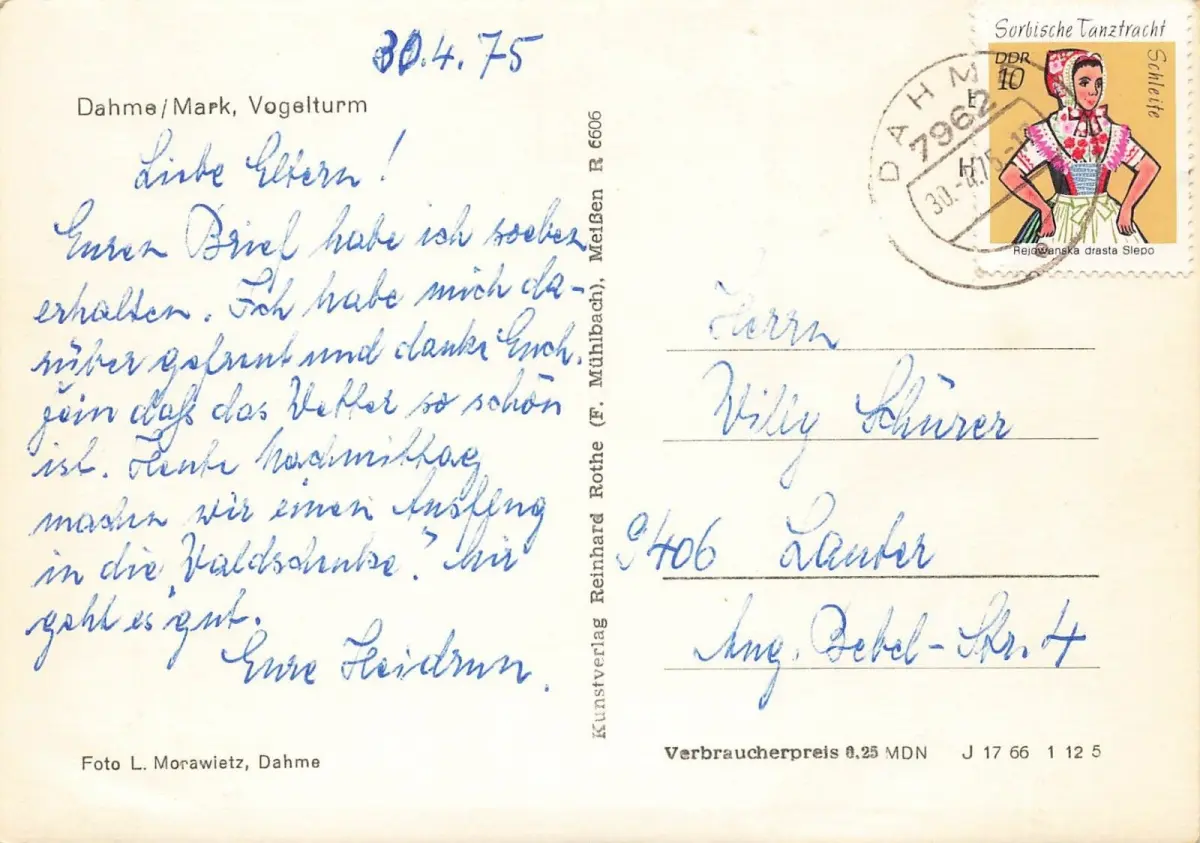 30.4.75
Dahme/Mark, Vogelturm
Liebe Eltern!
Euren Brief habe ich soeben
erhalten. Ich habe mich da-
rüber gefreut und danke Euch.
Fein daß das Wetter so schön
ist. Heute Nachmittag
machen wir einen Ausflug
in die "Waldschenke". Mir
geht es gut.
Eure Heidrun.
Foto L. Morawietz, Dahme
Kunstverlag Reinhard Rothe (F. Mühlbach), Meißen R 6606
Sorbische Tanztracht
Schleife
DDR
10
Rejowanska drasta Slepo
DAHME
7962
30.-4.75-17
Herrn
Willy Schürer
9406 Lauter
Aug. Bebel-Str. 4
Verbraucherpreis 0,25 MDN J 17 66 1 12 5